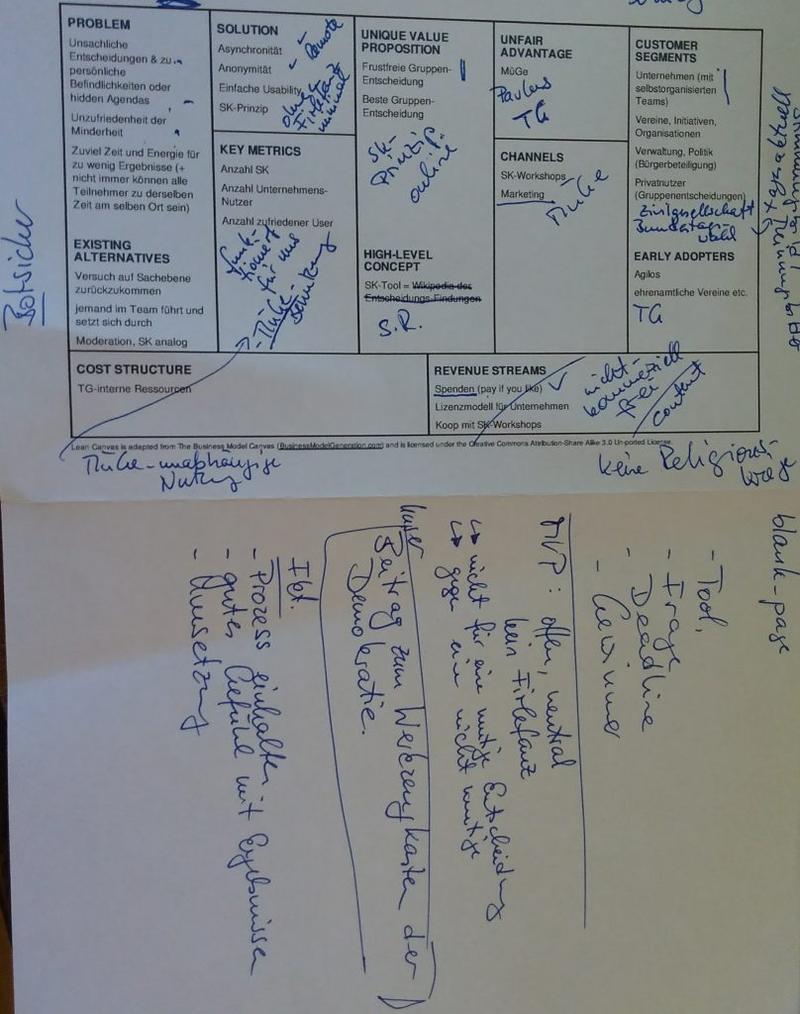 PROBLEM
Unsachliche
Entscheidungen & zu
persönliche
Befindlichkeiten oder
hidden Agendas
Unzufriedenheit der
Minderheit
Zuviel Zeit und Energie für
zu wenig Ergebnisse (+
nicht immer können alle
Teilnehmer zu derselben
Zeit am selben Ort sein)
EXISTING
ALTERNATIVES
Versuch auf Sachebene
zurückzukommen
jemand im Team führt und
setzt sich durch
Moderation, SK analog
SOLUTION
Asynchronität
Anonymität
Einfache Usability
SK-Prinzip
Remote
ohne
Firlefanz
minimal
KEY METRICS
Anzahl SK
Anzahl Unternehmens-
Nutzer
Anzahl zufriedener User
funk-
tioniert
für uns
UNIQUE VALUE
PROPOSITION
Frustfreie Gruppen-
Entscheidung
Beste Gruppen-
Entscheidung
SK-
Prinzip
online
HIGH-LEVEL
CONCEPT
SK-Tool = Wikipedia des
Entscheidungs-Findungen
S.R.
UNFAIR
ADVANTAGE
MüGe
Paulus
TG
CHANNELS
SK-Workshops
Marketing
CUSTOMER
SEGMENTS
Unternehmen (mit
selbstorganisierten
Teams)
Vereine, Initiativen,
Organisationen
Verwaltung, Politik
(Bürgerbeteiligung)
Privatnutzer
(Gruppenentscheidungen)
Zivilgesellschaft
Bundestag-
wahl
EARLY ADOPTERS
Agilos
ehrenamtliche Vereine etc.
TG
COST STRUCTURE
TG-interne Ressourcen
REVENUE STREAMS
Spenden (pay if you like)
Lizenzmodell für Unternehmen
Koop mit SK-Workshops
nicht-
kommerziell
frei
content
Lean Canvas is adapted from The Business Model Canvas (BusinessModelGeneration.com) and is licensed under the Creative Commons Attribution-Share Alike 3.0 Un-ported License.
unaphängige
Nutzung
keine Religions-
kriege
blank-page
- Tool,
- Frage,
- Deadline
- Gewinner
MVP: offen, neutral
kein Firlefanz
↳ nicht für eine mutige Entscheidung
↳ gegen eine nicht mutige
unser
Beitrag zum Werkzeugkasten der
Demokratie.
- Prozess einhalten
- gutes Gefühl mit Ergebnissen
- Umsetzung